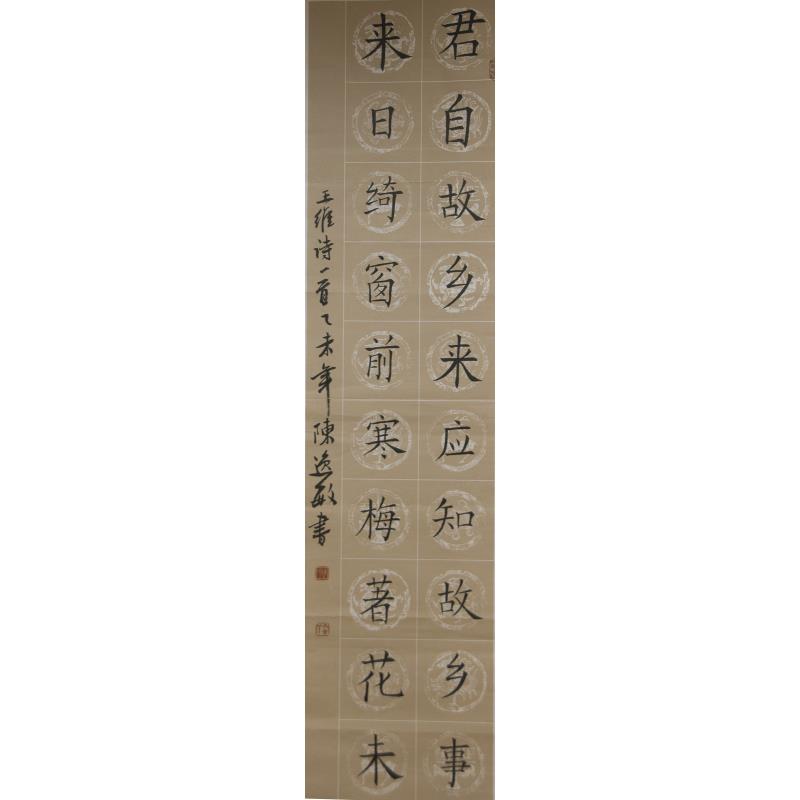 君自故乡来应知故乡事
来日绮窗前寒梅著花未
王维诗一首乙未年陈逸敏书